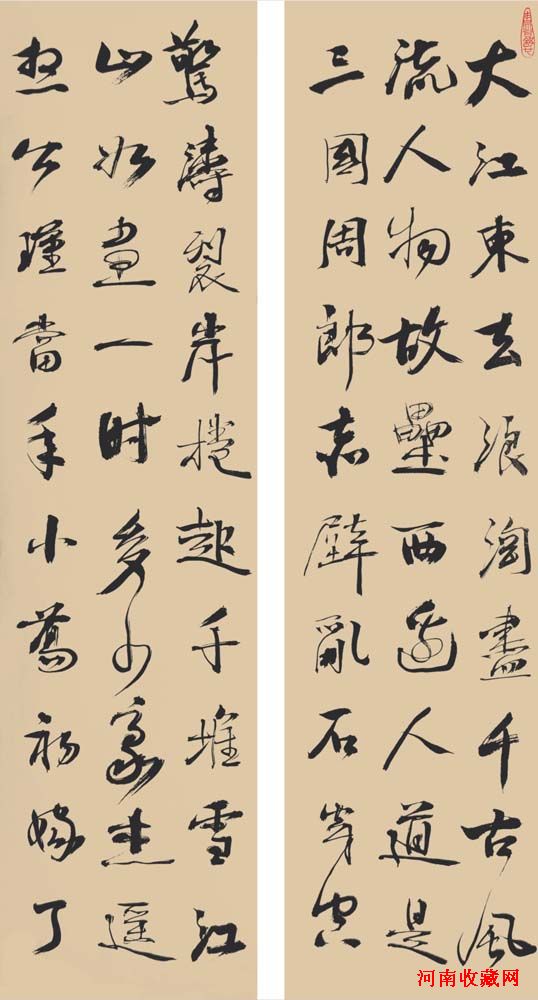 大江東去浪淘盡千古風
流人物故壘西邊人道是
三國周郎赤壁亂石穿空
驚濤裂岸捲起千堆雪江
山如畫一时多少豪杰遥
想公瑾當年小喬初嫁了
河南收藏网